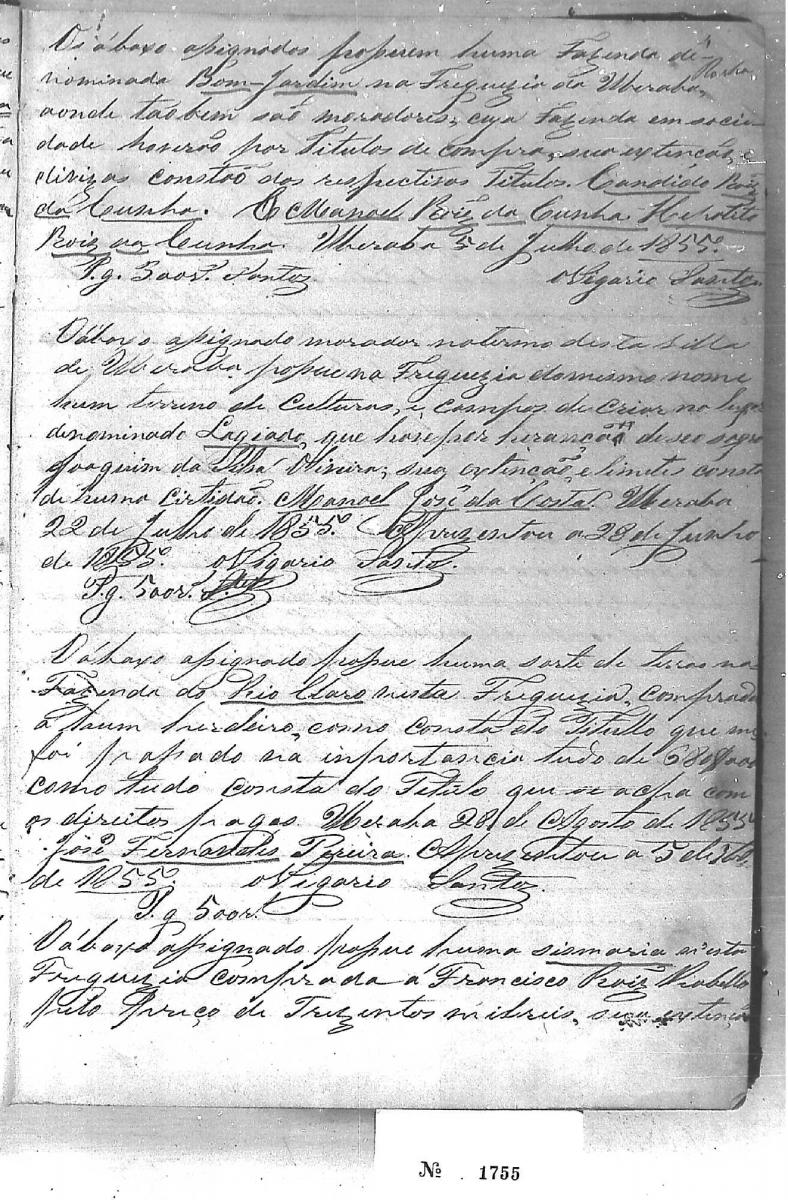 Os abaxo assignados possuem huma Fazenda de-
nominada Bom-Jardim na Freguezia da Uberaba,
aonde taõbem saõ moradores, cuja Fazenda em socie-
dade houveraõ por Titulos de compra, sua extincaõ, e
divizas constaõ dos respectivos Titulos. Candido Roiz
da Cunha. Manoel Roiz da Cunha
Roiz da Cunha. Uberaba 5 de Julho de 1855.
P.g. Santos o Vigario Santos
O abaxo assignado morador no termo desta Villa
de Uberaba possue na Freguezia do mesmo nome
hum terreno de Culturas, e campos de criar no lugar
denominado Lagiado, que houve por herança de seo sogro
Joaquim da Silva Oliveira; sua extinçaõ, e limites consta
de huma Certidaõ. Manoel José da Costa. Uberaba
22 de Julho de 1855. Aprezentou a 28 de Junho
de 1855. o Vigario Santos.
P.g. 500r.
O abaxo assignado possue huma sorte de terras na
Fazenda do Rio Claro nesta Freguezia, comprada
á hum herdeiro, como consta do Titullo que me
foi passado na importancia tudo de
como tudo consta do Titulo que se acha com
os direitos pagos. Uberaba 28 de Agosto de 1855
José Fernandes Pereira. Aprezentou a 5 de
de 1855. o Vigario Santos.
P.g. 500r.
O abaxo assignado possue huma sismaria n'esta
Freguezia comprada á Francisco Roiz Rabello
pelo preço de Trezentos mil reis, sua extinçaõ
Nº 1755